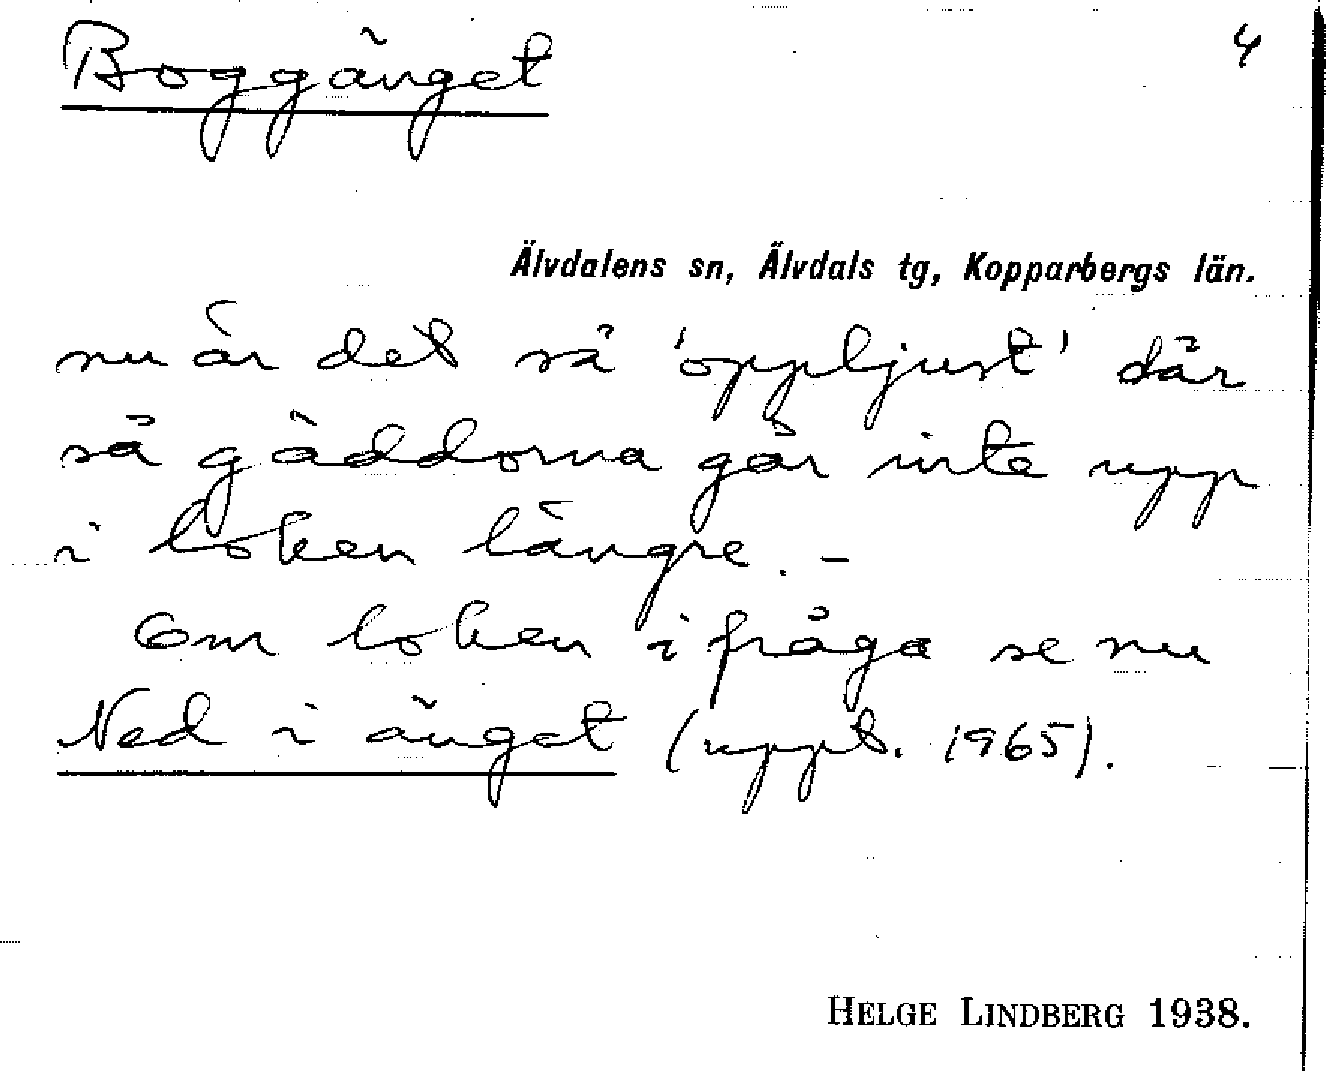 Boggänget
4
Älvdalens sn, Älvdals tg, Kopparbergs län.
nu är det så 'oppljust' där
så gäddorna går inte upp
i loken längre. –
Om loken ifråga se nu
Ned i änget (uppt. 1965).
HELGE LINDBERG 1938.